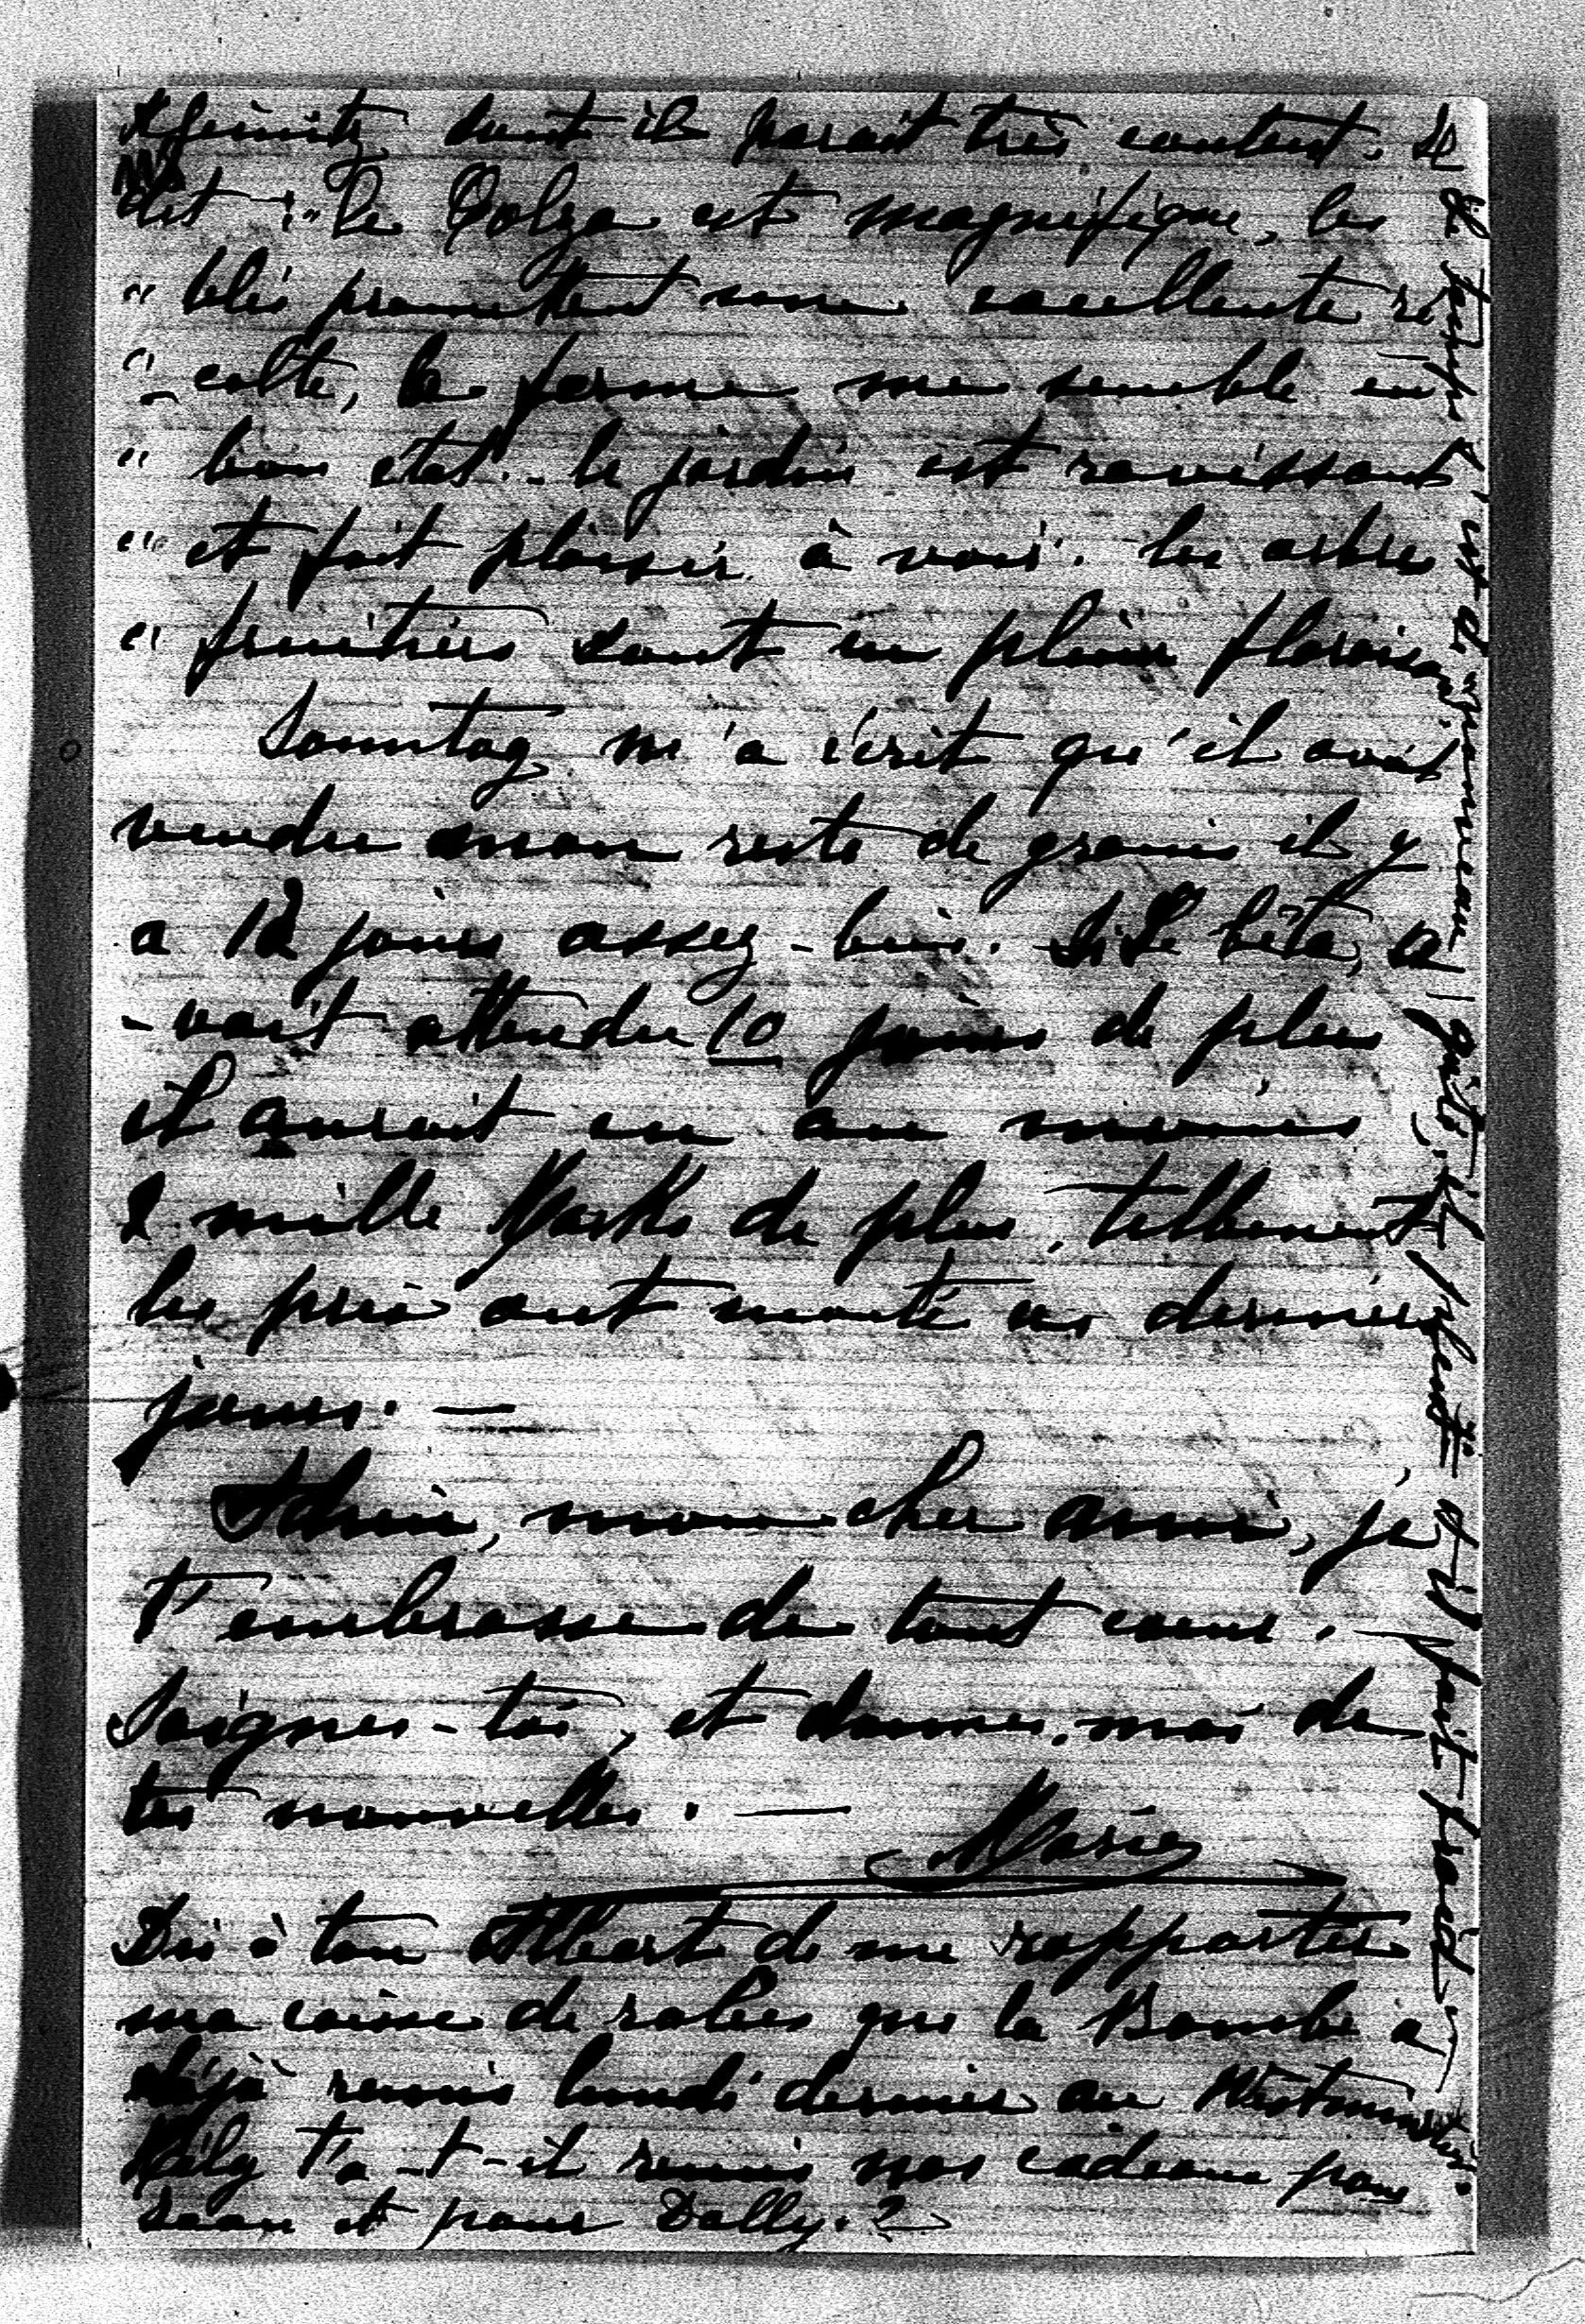 dont il parait très content. Il
dit : "le Colza est magnifique, les
" blés promettent une excellente ré
" - colte, la ferme me semble en
" bon etat. - le jardin est ravissant
" et fait plaisir à voir. les arbres
" fruitiers sont en pleine floraison.
Sonntag m'a écrit qu'il avait
vendu mon reste de grains il y
a 12 jours assez - bien. Si Le bêta, a
- vait attendu 10 jours de plus
il aurait eu au moins
2 mille Marks de plus, tellement
les prix ont monté ces derniers
jours. —
Adieu, mon cher ami, je
t'embrasse de tout coeur. -
Soignes - toi, et donnes. moi de
tes nouvelles. —
Marie
Dis à ton Albert de me rapporter
ma caisse de robes que la Bombe a
déjà remis lundi dernier au Westminster.
t'a - t - il remis nos cadeaux pour
et pour Dolly. ?
Le temps s'est de nouveau gâté, il pleut et il fait froid. -